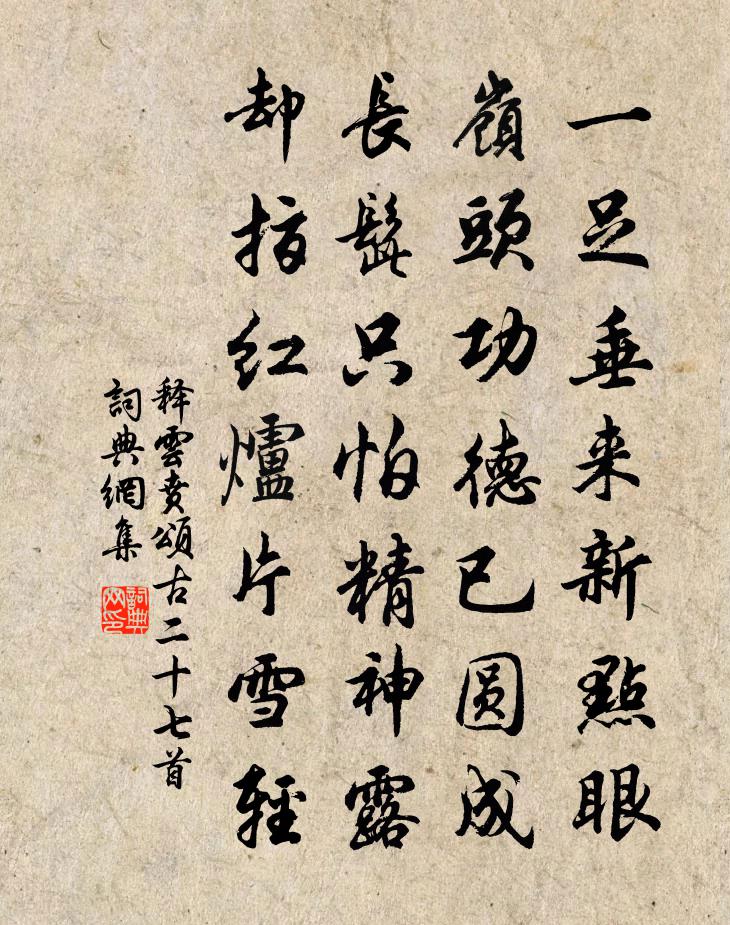 一足垂来新點眼
嶺頭功德已圓成
長髭只怕精神露
却指紅爐片雪輕
释雲賁頌古二十七首
詞典網集
詞典网印